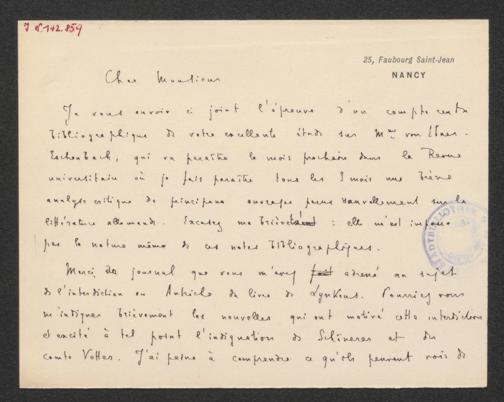 J. N. 142.854
25, Faubourg Saint-Jean
NANCY
Cher Monsieur
Je vous envoie ci joint l'épreuve d'un compte rendu
bibliographique de votre excellente étude sur Mme von Ebner-
Eschenbach, qui va paraître le mois prochain dans la Revue
universitaire où je fais paraître tous les 3 mois une brève
analyse critique de principaux ouvrages parus nouvellement sur la
littérature allemande. Excusez ma brièveté : elle m'est imposée
par la nature même de ces notes bibliographiques.
Merci du journal que vous m'avez adressé au sujet
de l'interdiction en Autriche du livre de Lynkeus. Pourriez vous
m'indiquer brièvement les nouvelles qui ont motivé cette interdiction
et excité à tel point l'indignation de Schönerer et du
comte Vetter. J'ai peine à comprendre ce qu'ils peuvent voir de